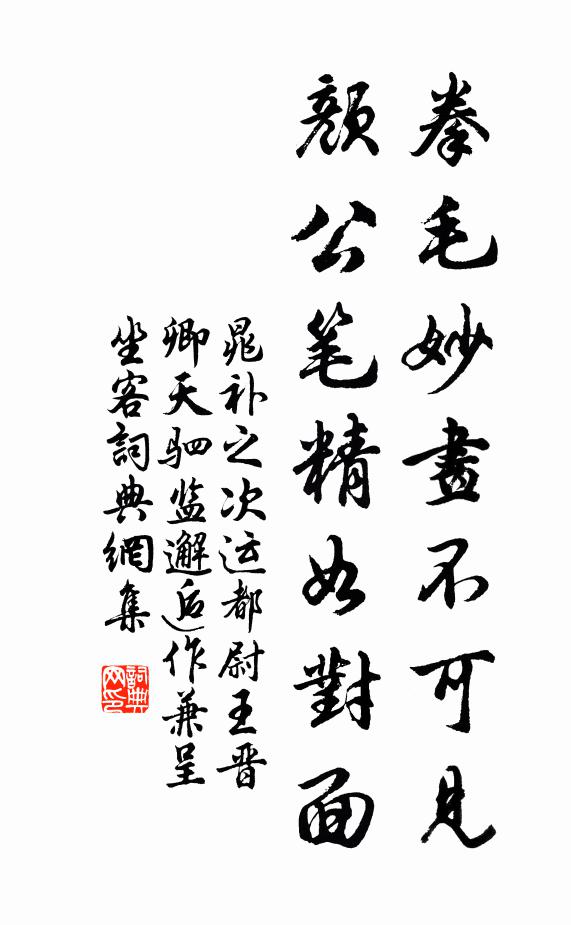 拳毛妙畫不可見
顏公笔精如對面
晁补之次运都尉王晋
卿天驷监邂逅作兼呈
坐客詞典網集
詞典
网印